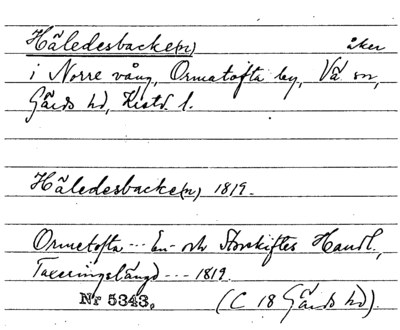 Häledesbacke(n) åker
i Norre vång, Ormatofta by, Vä sn,
Gärds hd, Kristd. l.
Häledesbacke(n) 1819.
Ormetofta --- En- och Storskiftes Handl.,
Taxeringslängd --- 1819.
Nr 5343. (C 18 Gärds hd).